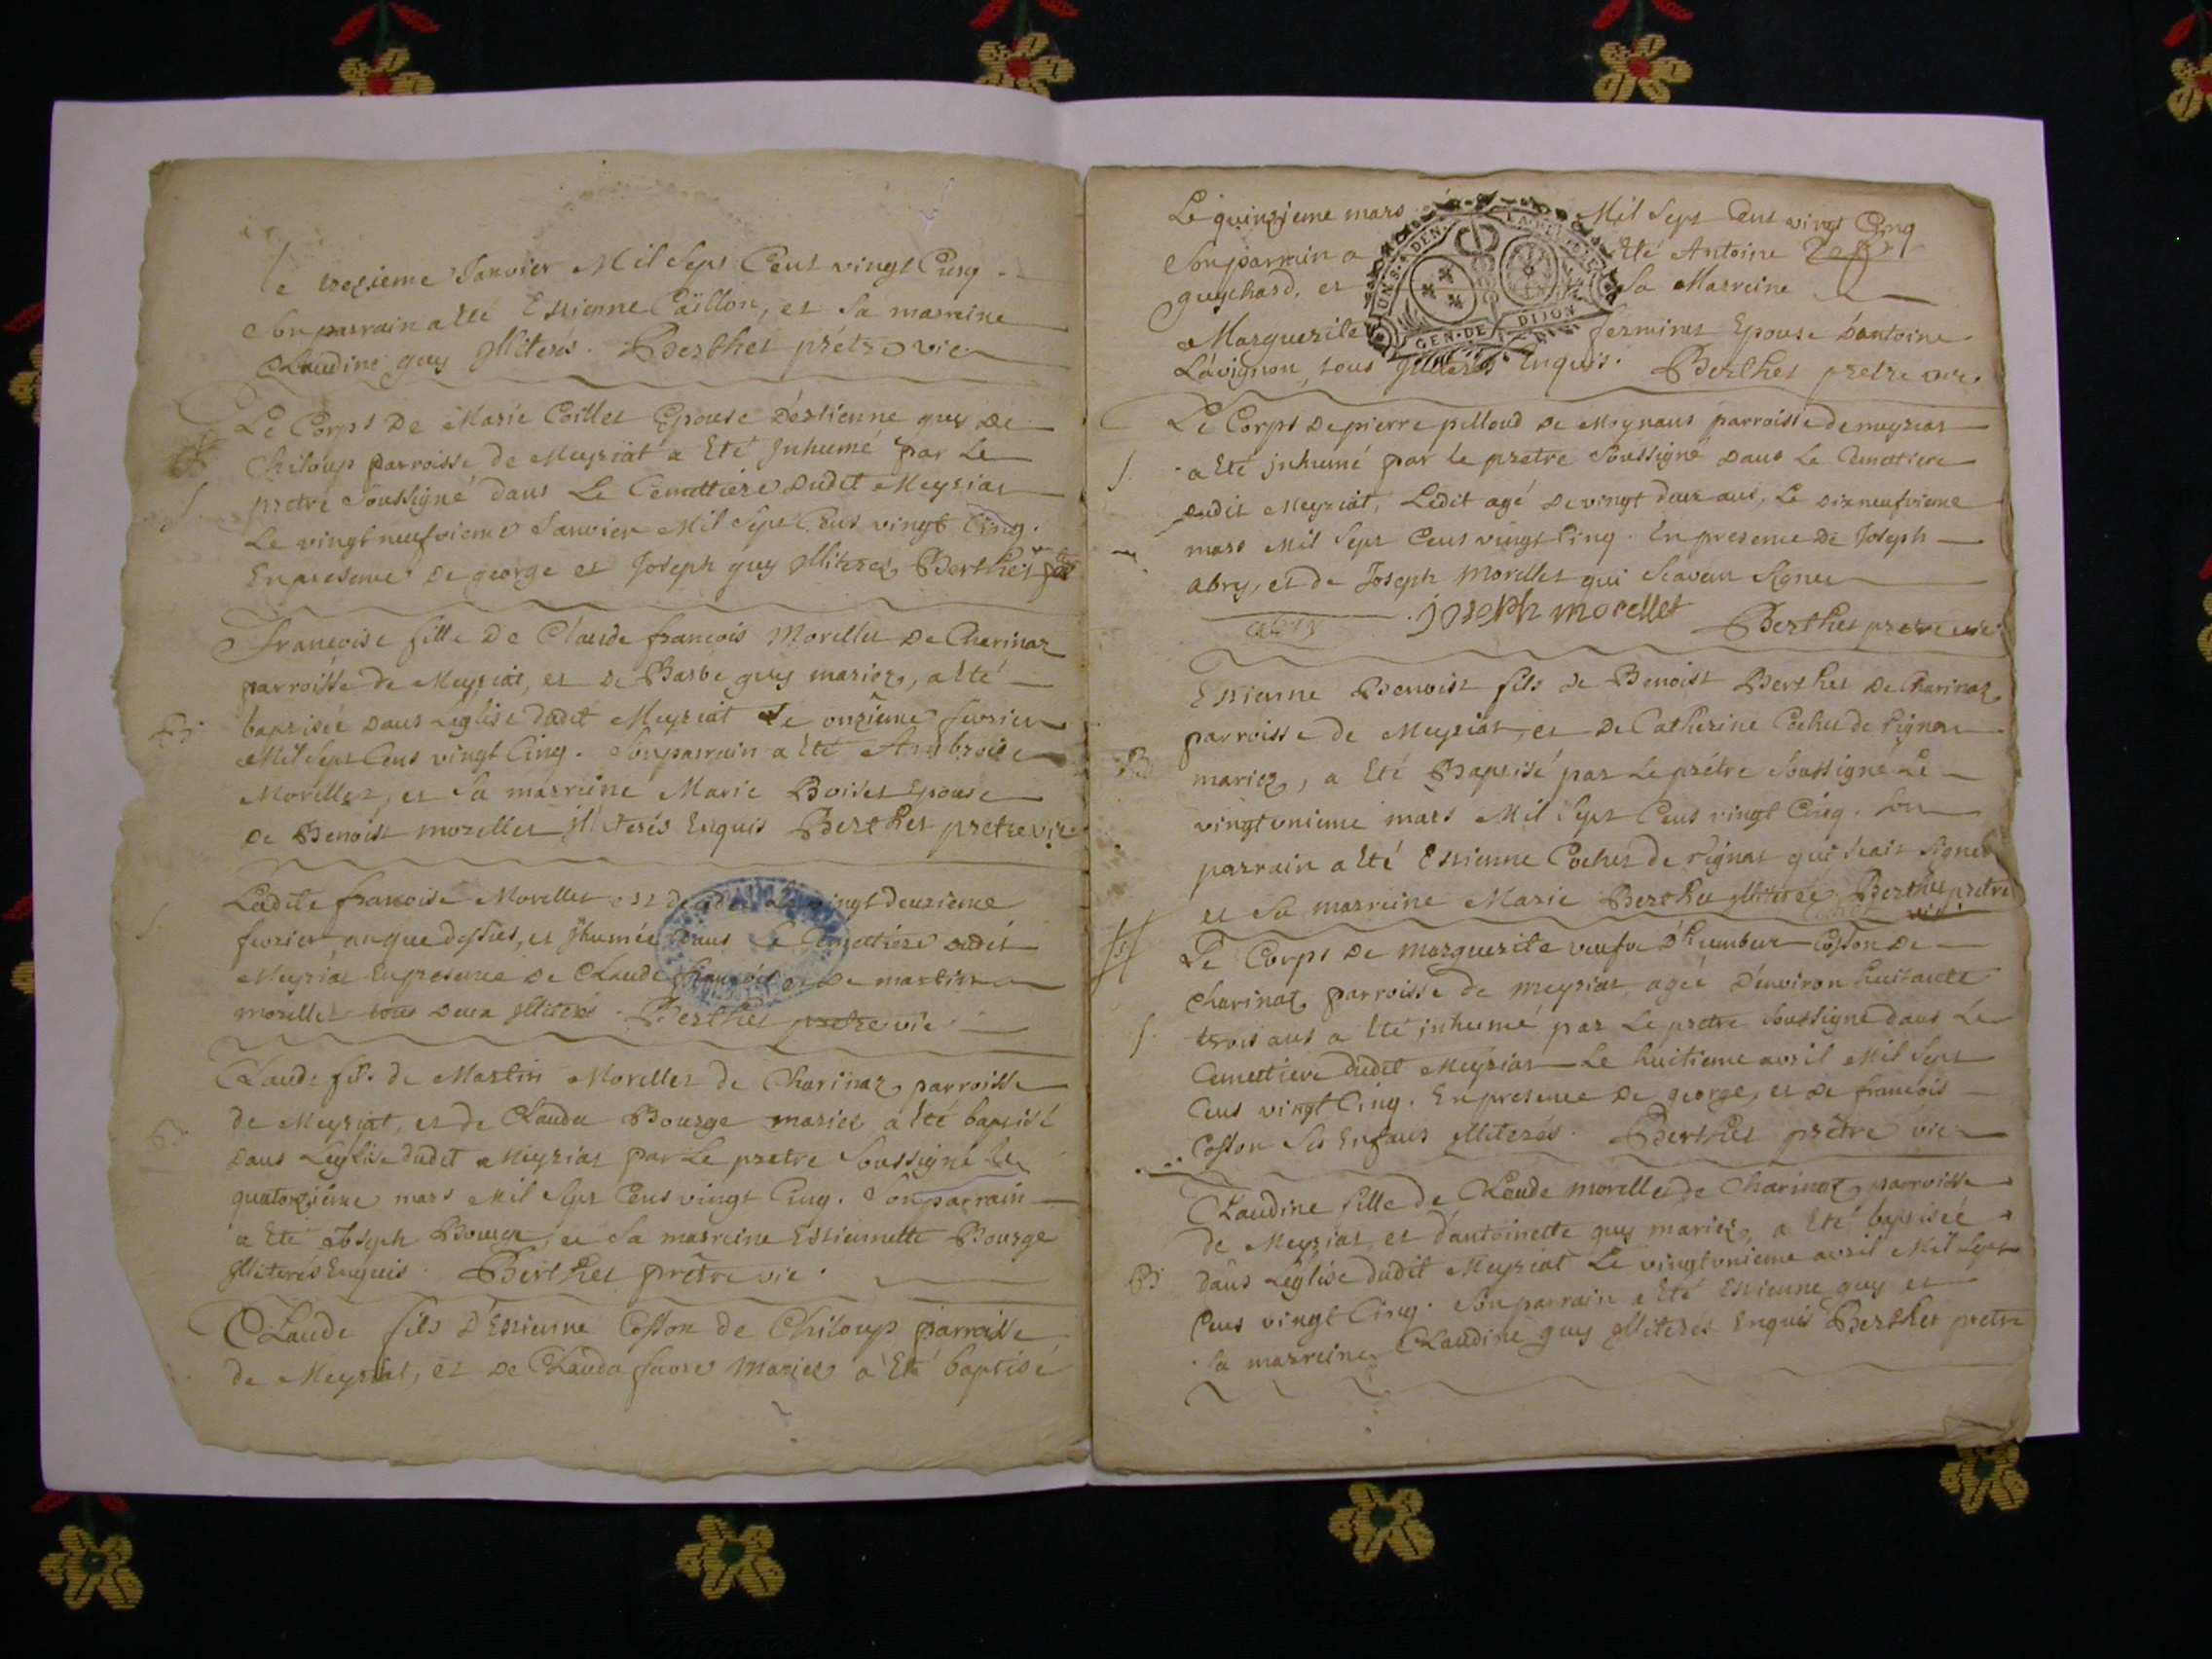 Le trezieme Janvier Mil Sept Cent vingt Cinq.
Son parrain a été Estienne Caillon, et Sa marraine
Claudine guy Illiterés. Berthet prétre vic.
Le Corps De Marie Coillet Epouse D'estienne guy De
Chiloup parroisse de Meyriat a Eté Inhumé par Le
S. pretre Soussigné dans Le Cemettiere dudit Meyriat
Le vingt neufvieme Janvier Mil Sept Cent vingt Cinq.
En presence De george et Joseph guy Illiterez Berthet
Francoise fille De Claude francois Morellet De Charinaz
parroisse de Meyriat, et De Barbe guy mariez, a été
B. baptisée dans Léglise dudit Meyriat Le onzieme fevrier
Mil Sept Cent vingt Cinq. Son parrain a été Ambroise
Morellet, et Sa marreine Marie Boisset Epouse
De Benoist morellet Illiterés Enquis Berthet pretre vic
Ladite francoise Morellet est decedée Le vingt deuxieme
fevrier an que dessus, et Ihumée dans Le Cemettiere dudit
Meyriat En presence de Claude francois et De martin
morellet tous deux Illiterés. Berthet pretre vic
Claude fils de Martin Morellet de Charinaz parroisse
de Meyriat, et de Clauda Bourge mariez a été baptisé
B. dans Leglise dudit Meyriat par Le pretre Soussigné le
quatorzieme mars Mil Sept Cent vingt Cinq. Son parrain
a Eté Joseph Bourge, et Sa marreine Estiennette Bourge
Illiterés Enquis. Berthet prétre vic.
Claude fils D'Estienne Cosson de Chiloup parroisse
de Meyriat, et De Clauda favre Mariez a Eté baptisé
Le quinzieme mars Mil Sept Cent vingt Cinq
Son parrain a Eté Antoine
guychard, et Sa Marreine
UN S. 4 DEN.
GEN. DE DIJON
Marguerite fermines Epouse D'antoine
Lavignon, tous Illiterés Enquis. Berthet pretre vic.
Le Corps De pierre pilloud de Moynans parroisse de meyriat
S. a Eté inhumé par le pretre Soussigné dans Le Cemettiere
dudit Meyriat, Ledit agé De vingt deux ans, Le dixneufvieme
mars Mil Sept Cent vingt Cinq. En presence De Joseph
abry, et de Joseph Morellet qui Scavent Signer
abry joseph morellet Berthet pretre vic.
Estienne Benoist fils de Benoist Berthet De Charinaz
parroisse de Meyriat, et De Catherine Cochet de Rignat
B. mariez, a Eté Baptisé par Le prétre Soussigné Le
vingt unieme mars Mil Sept Cent vingt Cinq. Son
parrain a Eté Estienne Cochet de Rignat qui Scait Signer
et Sa marreine Marie Berthet Illiterée Berthet pretre
vic.
Le Corps De marguerite veufve D'humbert Cosson De
Charinaz parroisse de meyriat agée D'environ huitante
S. trois ans a Eté inhumé par Le pretre Soussigné dans Le
Cemettiere dudit Meyriat Le huitieme avril Mil Sept
Cent vingt Cinq. En presence De george, et De francois
Cosson Ses Enfans Illiterés. Berthet prétre vic
Claudine fille de Claude morellet de Charinaz parroisse
de Meyriat, et d'antoinette guy mariez, a Eté baptisée
B. dans Léglise dudit Meyriat Le vingt unieme avril Mil Sept
Cent vingt Cinq. Son parrain a Eté Estienne guy et
Sa marreine Claudine guy Illiterés Enquis Berthet pretre